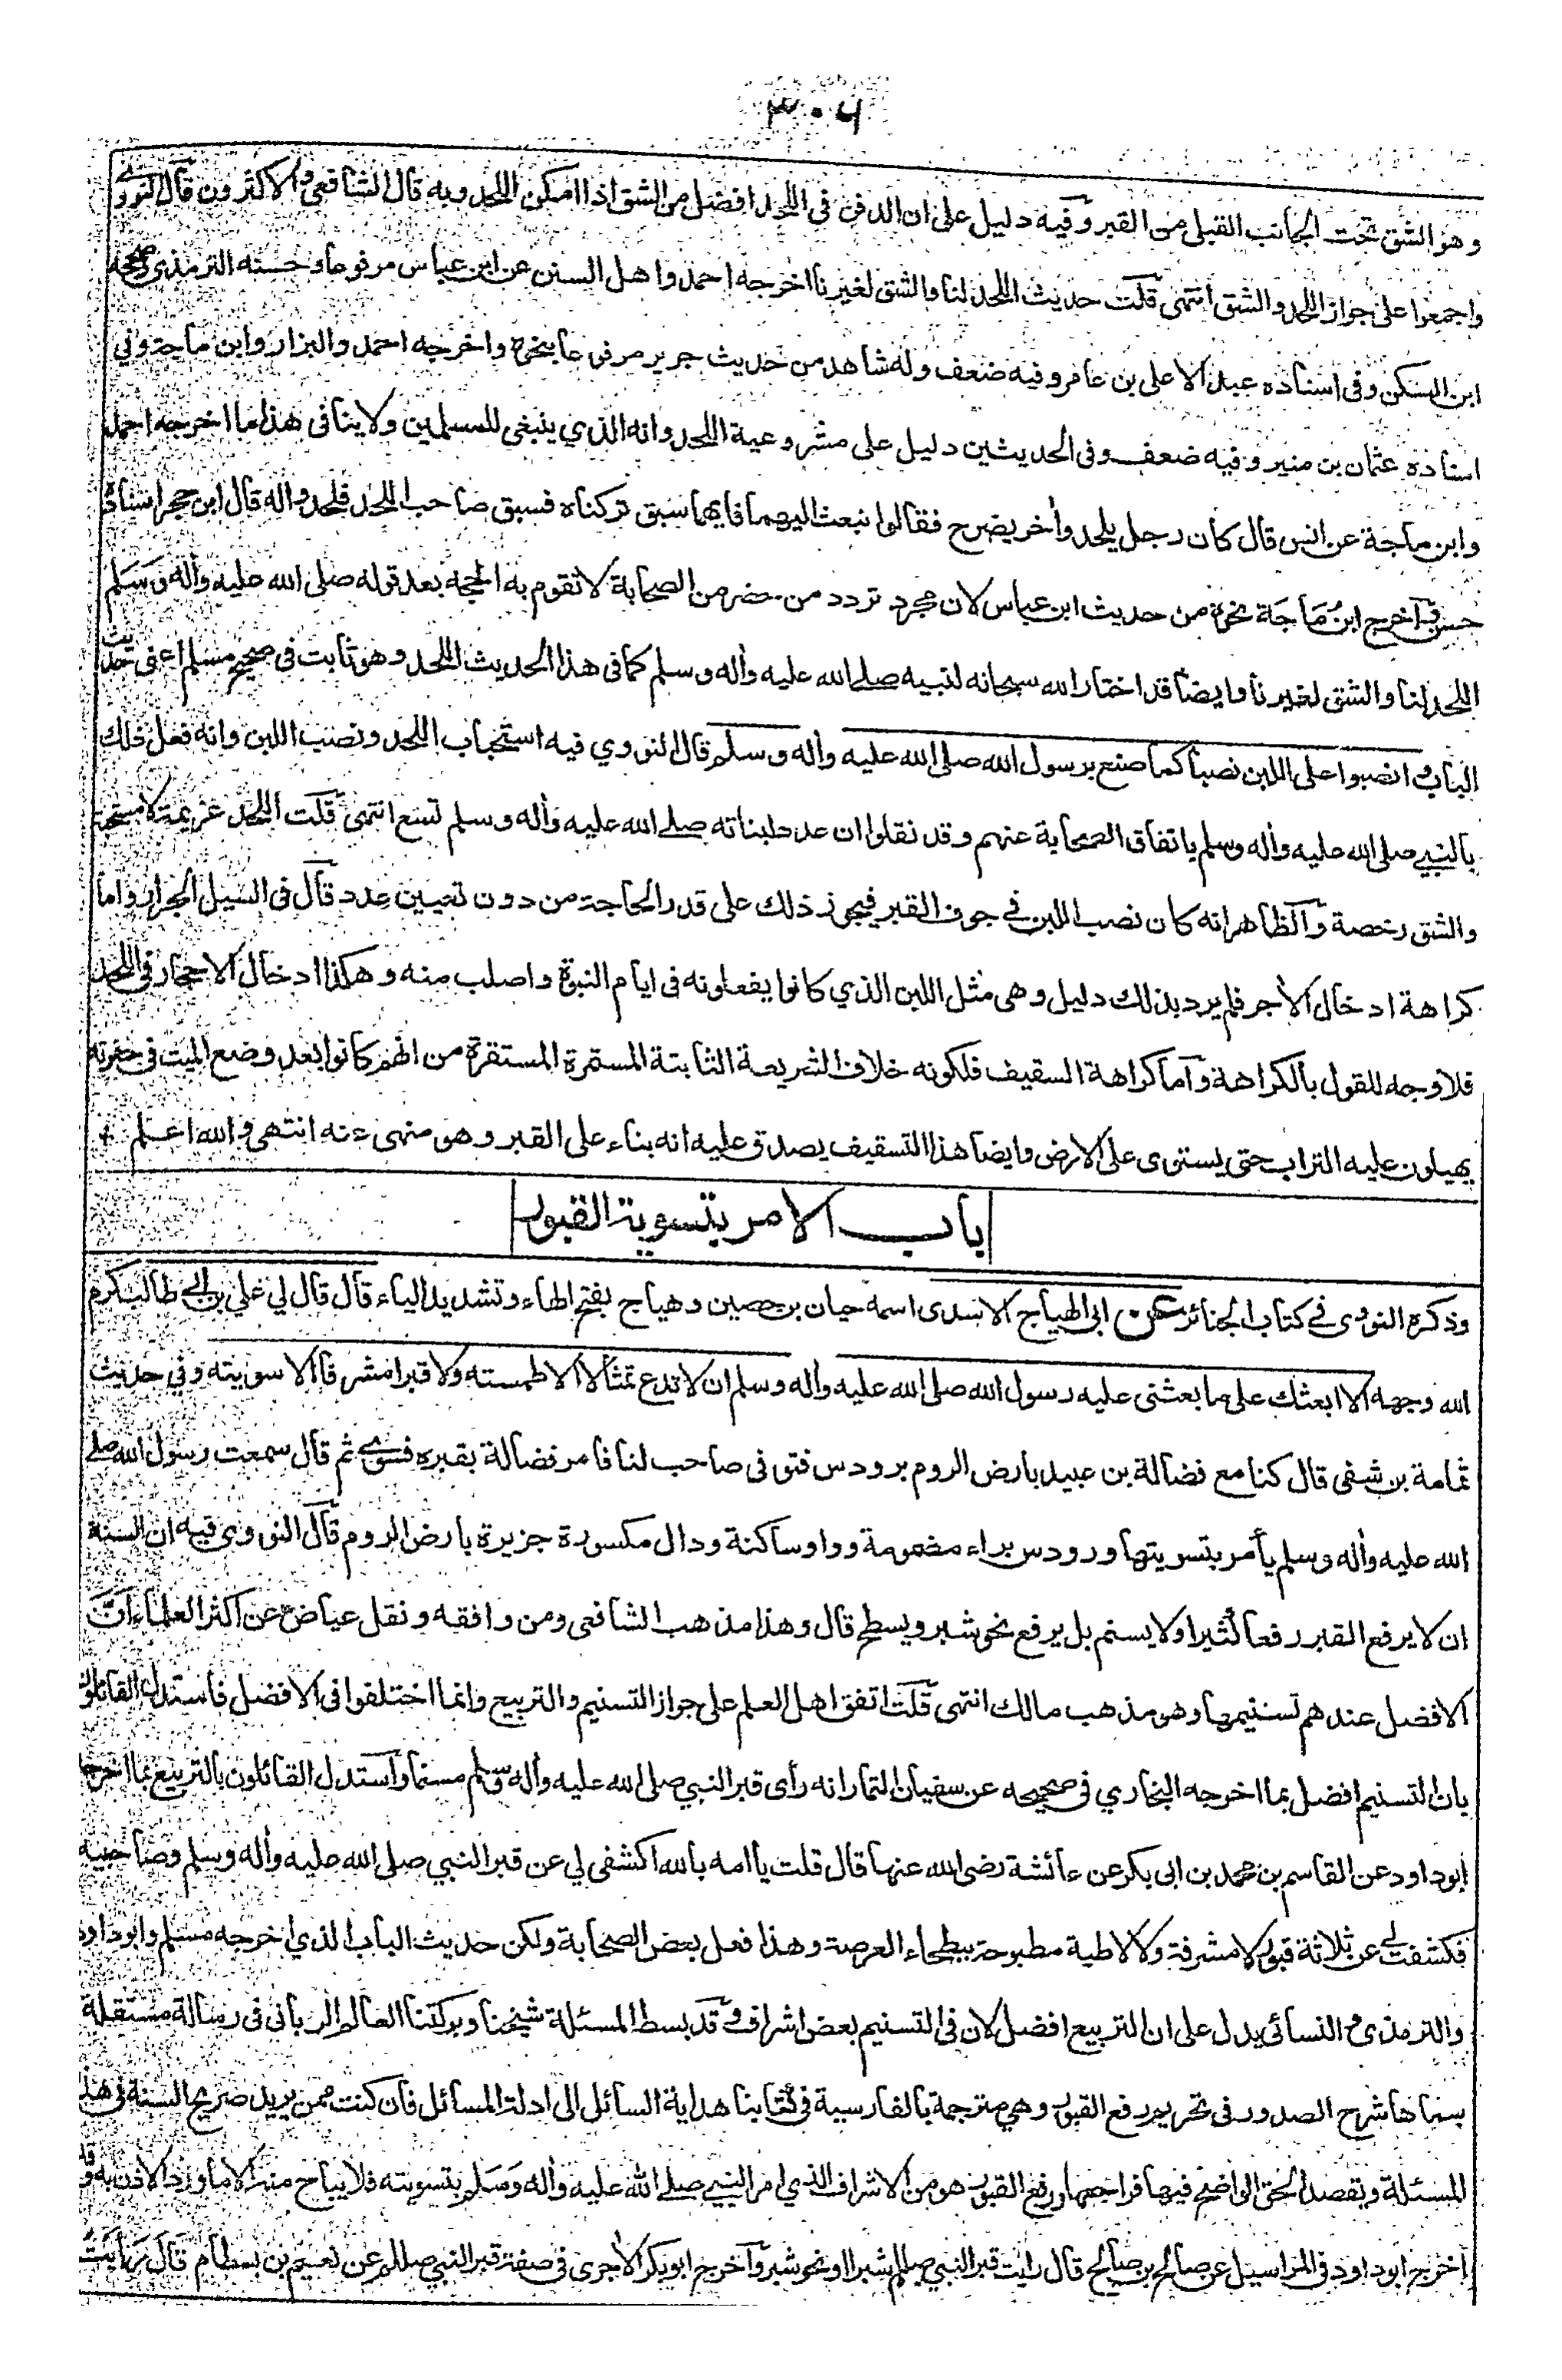 ٣٠٦
وهو الشق تحت الجانب القبلي من القبر وفيه دليل على ان الدفن فى اللحد افضل من الشق اذا امكن اللحد وبه قال الشافعي والاكثرون قال النووي
واجمعوا على جواز اللحد والشق انتهى قلت حديث اللحد لنا والشق لغيرنا اخرجه احمد واهل السنن عن ابن عباس مرفوعا وحسنه الترمذى وصححه
ابن السكن وفى اسناده عبد الاعلى بن عامر وفيه ضعف وله شاهد من حديث جرير مرفوعا بنحوه واخرجه احمد والبزار وابن ماجة وفي
اسناده عثمان بن منير وفيه ضعف وفى الحديثين دليل على مشروعية اللحد وانه الذي ينبغى للمسلمين ولا ينافى هذا ما اخرجه احمد
وابن ماجة عن انس قال كان رجل يلحد وأخر يضرح فقالوا نبعث اليهما فايهما سبق تركناه فسبق صاحب اللحد فلحدوا له قال ابن حجر اسناده
حسن وآخرج ابن ماجة نحوه من حديث ابن عباس لان مجرد تردد من حضر من الصحابة لا تقوم به الحجة بعد قوله صلى الله عليه وأله وسلم
اللحد لنا والشق لغيرنا وايضا قد اختار الله سبحانه لنبيه صلى الله عليه وأله وسلم كما فى هذا الحديث اللحد وهو ثابت فى صحيح مسلم اعنى حديث
الباب وانصبوا على اللبن نصبا كما صنع برسول الله صلى الله عليه وأله وسلم قال النووي فيه استحباب اللحد ونصب اللبن وانه فعل ذلك
بالنبي صلى الله عليه وأله وسلم باتفاق الصحابة عنهم وقد نقلوا ان عدد لبناته صلى الله عليه وأله وسلم تسع انتهى قلت اللحد عزيمة لا مستحبة
والشق رخصة وآلظاهر انه كان نصب اللبن في جوف القبر فيجوز ذلك على قدر الحاجة من دون تعيين عدد قال فى السيل الجرار واما
كراهة ادخال الأجر فلم يرد بذلك دليل وهى مثل اللبن الذي كانوا يفعلونه فى ايام النبوة واصلب منه وهكذا ادخال الاحجار فى اللحد
فلا وجه للقول بالكراهة وآما كراهة السقيف فلكونه خلاف الشريعة الثابتة المستمرة المستقرة من انهم كانوا بعد وضع الميت فى حفرته
يهيلون عليه التراب حتى يستوى على الارض وايضا هذا التسقيف يصدق عليه انه بناء على القبر وهو منهى عنه انتهى والله اعلم +
باب الامر بتسوية القبور
وذكره النووى في كتاب الجنائز عن ابى الهياج الاسدى اسمه حيان بن حصين وهياج بفتح الهاء وتشديد الياء قال قال لي علي بن ابي طالب كرم
الله وجهه الا ابعثك على ما بعثنى عليه رسول الله صلى الله عليه وأله وسلم ان لا تدع تمثالا الا طمسته ولا قبرا مشرفا الا سويته وفي حديث
ثمامة بن شفى قال كنا مع فضالة بن عبيد بارض الروم برودس فتوفى صاحب لنا فامر فضالة بقبره فسوي ثم قال سمعت رسول الله صلى
الله عليه وأله وسلم يأمر بتسويتها ورودس براء مضمومة وواو ساكنة ودال مكسورة جزيرة بارض الروم قال النووي فيه ان السنة
ان لا يرفع القبر رفعا كثيرا ولا يسنم بل يرفع نحو شبر ويسطح قال وهذا مذهب الشافعى ومن وافقه ونقل عياض عن اكثر العلماء انّ
الافضل عندهم تسنيمها وهو مذهب مالك انتهى قلت اتفق اهل العلم على جواز التسنيم والتربيع وانما اختلفوا فى الافضل فاستدل القائلون
بان التسنيم افضل بما اخرجه البخاري فى صحيحه عن سفيان التمار انه رأى قبر النبي صلى الله عليه وأله وسلم مسنما وآستدل القائلون بالتربيع بما اخرجه
ابو داود عن القاسم بن محمد بن ابى بكر عن عائشة رضى الله عنها قال قلت يا امه بالله اكشفى لي عن قبر النبي صلى الله عليه وأله وسلم وصاحبيه
فكشفت لي عن ثلاثة قبور لا مشرفة ولا لاطية مطبوحة ببطحاء العرصة وهذا فعل بعض الصحابة ولكن حديث الباب الذي اخرجه مسلم وابو داود
والترمذى والنسائى يدل على ان التربيع افضل لان فى التسنيم بعض اشراف وقد بسط المسئلة شيخنا وبركتنا العالم الربانى فى رسالة مستقلة
سماها شرح الصدور فى تحريم رفع القبور وهي مترجمة بالفارسية فى كتابنا هداية السائل الى ادلة المسائل فان كنت ممن يريد صريح السنة فى هذه
المسئلة ويقصد الحق الواضح فيها فراجعها ورفع القبور هو من الاشراف الذي امر النبي صلى الله عليه وأله وسلم بتسويته فلا يباح منه الا ما ورد الاذن به وقد
اخرج ابو داود فى المراسيل عن صالح بن صالح قال رايت قبر النبي صللم شبرا او نحو شبر وآخرج ابو بكر الأجرى فى صفة قبر النبي صللم عن نعيم بن بسطام قال رأيت